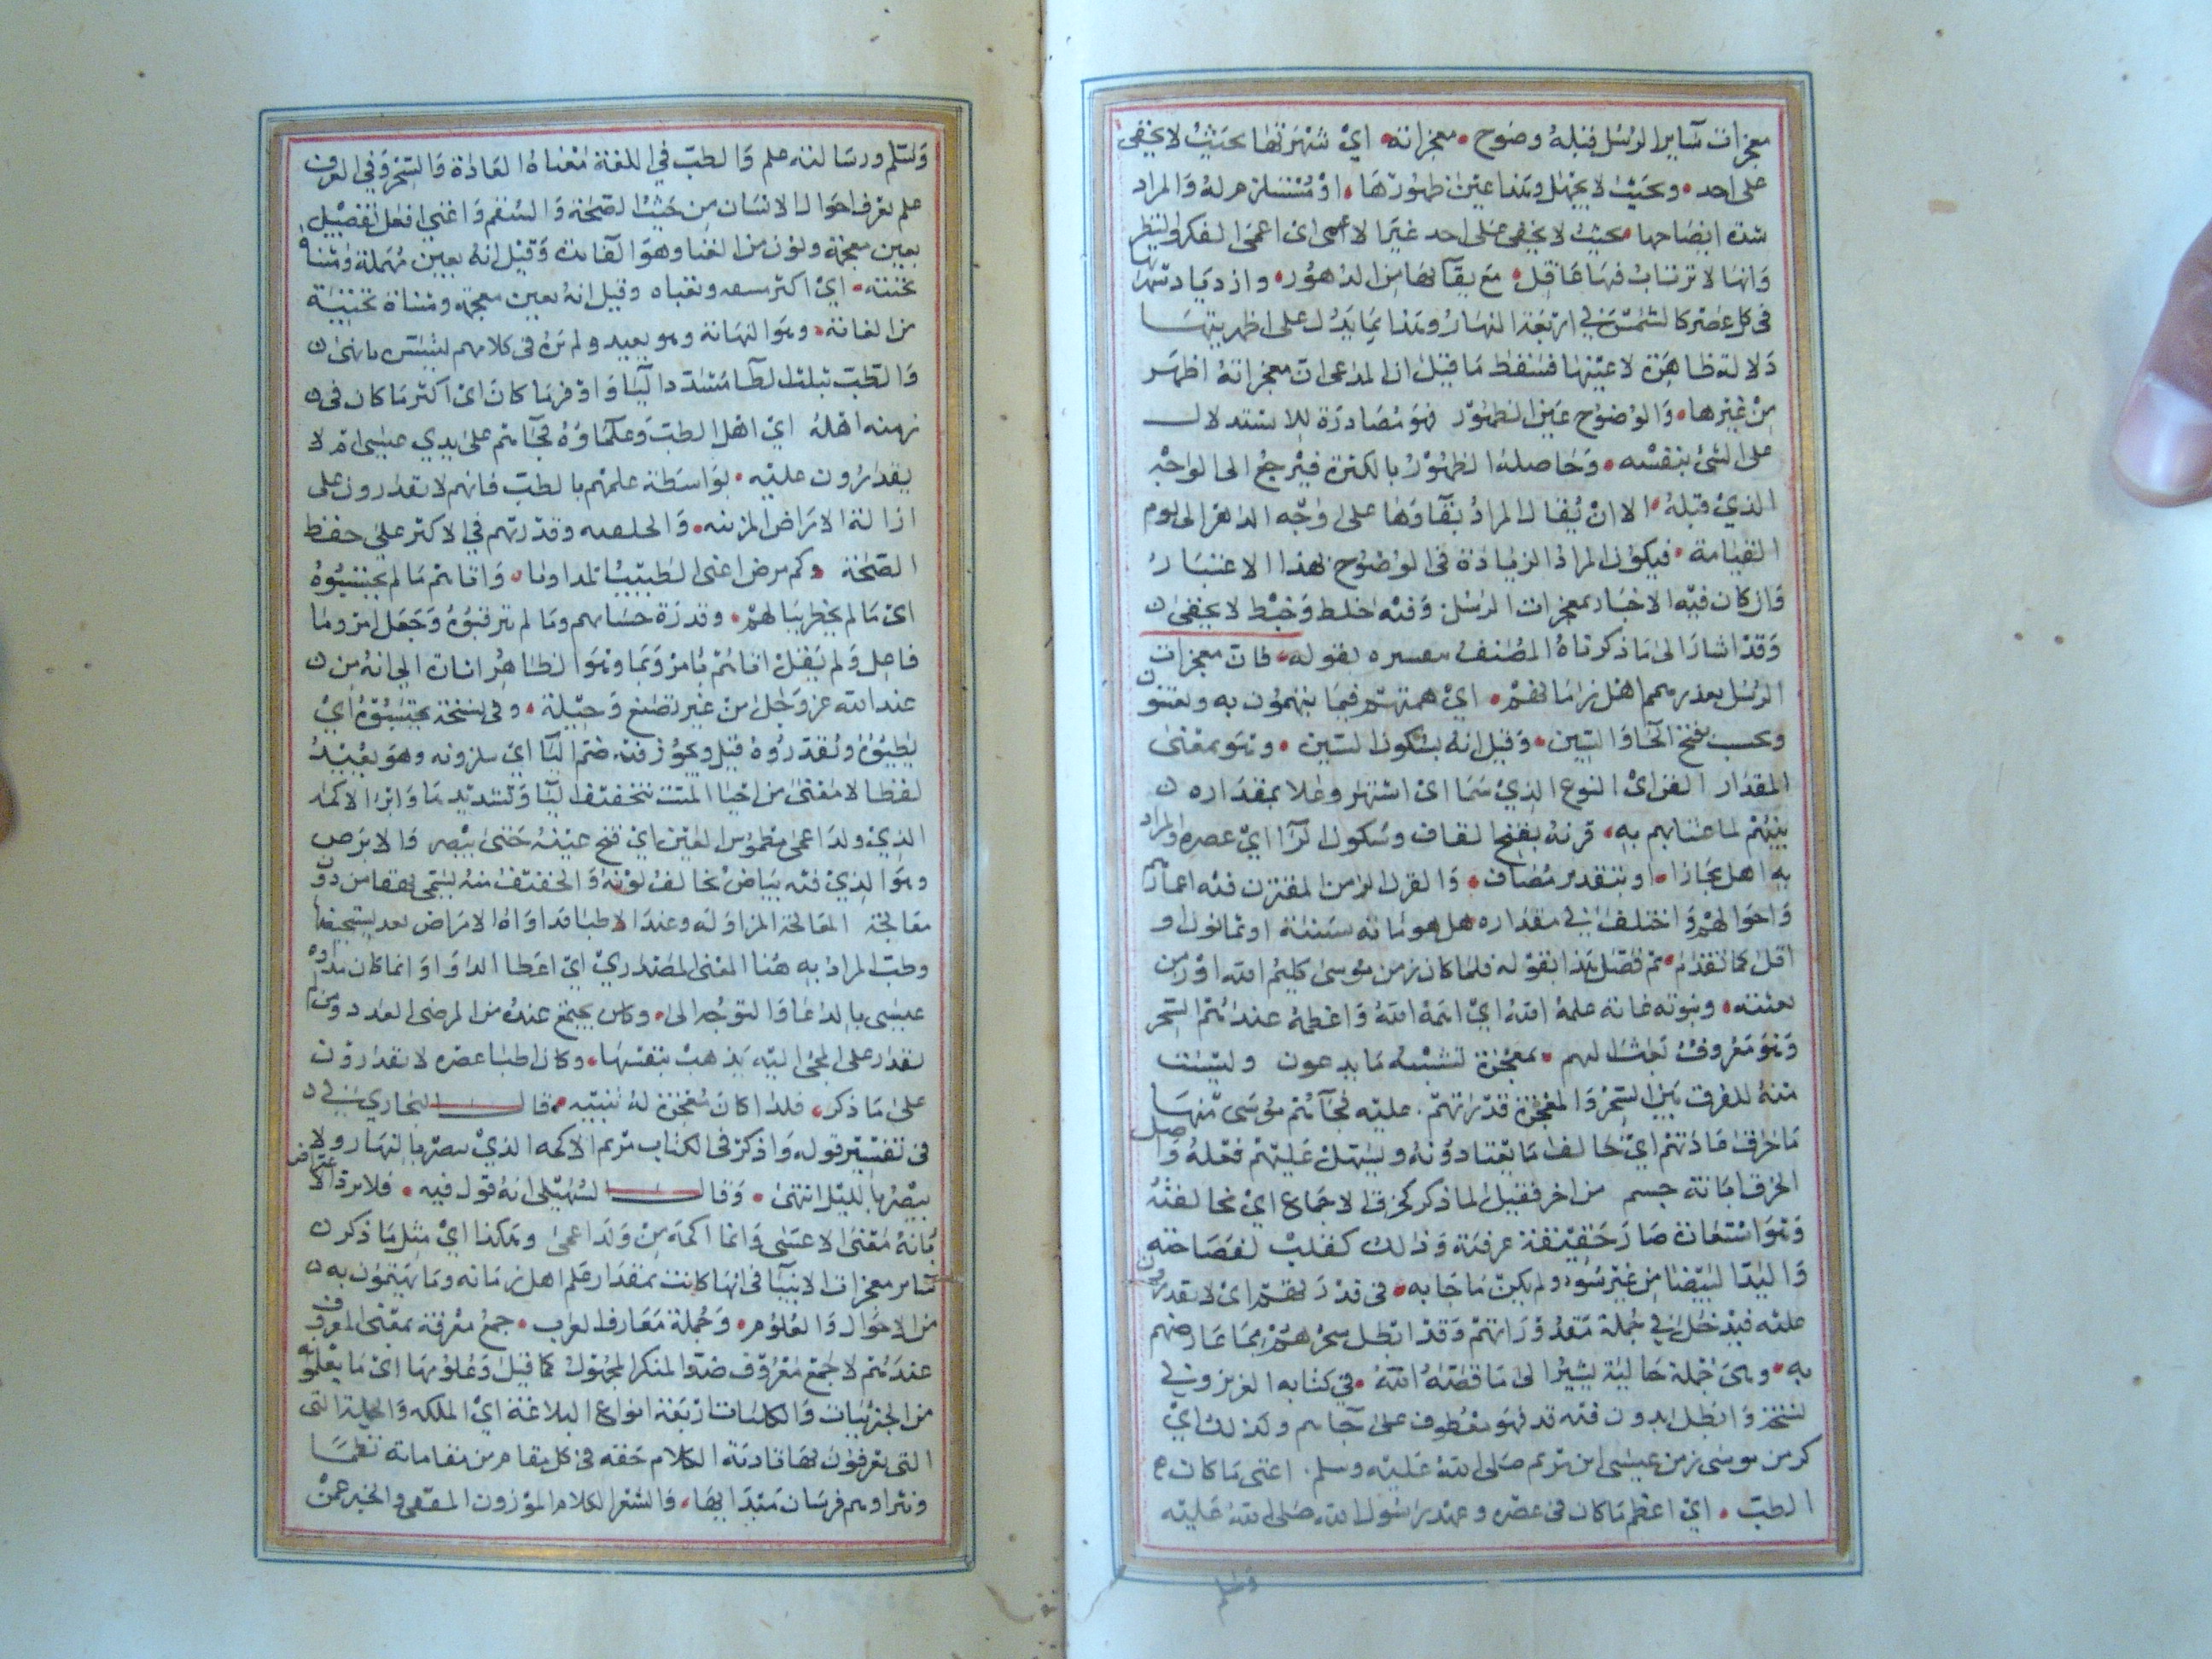 معجزات ساير الرسل قبله وضوح معجزاته اي شهرتها بحيث لا يخفى
على احد وبحيث لا يجهل وهذا عين ظهورها او مستلزم له والمراد
شدة ايضاحها بحيث لا يخفى على احد غير الاعمى اي اعمى الفكر والنظر
وانها لا ترتاب فيها عاقل مع بقائها من الدهور وازديادتها
في كل عصر كالشمس في اربعة النهار وهذا مما يدل على اظهريتها
دلالة ظاهرة لا عينها فسقط ما قيل ان المدعى ان معجزاته اظهر
من غيرها والوضوح عين الظهور فهو مصادرة للاستدلال
على الشئ بنفسه وحاصله الظهور بالكثرة فيرجع الى الوجه
الذي قبله الا ان يقال المراد بقاوها على وجه الدهر الى يوم
القيامة فيكون المراد الزيادة في الوضوح بهذا الاعتبار
وان كان فيه الاخبار بمعجزات الرسل وفيه خلط وخبط لا يخفى
وقد اشار الى ما ذكرناه المصنف بقوله فان معجزات
الرسل بقدر همم اهل زمانهم اي همتهم فيما يهتمون به ويعتنون
وبحسب بفتح الحا والسين وقيل انه بسكون السين وهو بمعنى
المقدار الفن اي النوع الذي سما اي اشتهر وعلا بمقداره
بينهم لما عنايهم به قرنه بفتح القاف وسكون الرا اي عصره والمراد
به اهل مجازا او بتقدير مضاف والقرن الزمن المقترن فيه اعمارهم
واحوالهم واختلف في مقداره هل هو مائة سنة او ثمانون او
اقل كما تقدم ثم فصل هذا بقوله فلما كان زمن موسى كليم الله اوزمن
بعثته ونبوته غاية علم اهله اي اهمه الله واعظمه عندهم السحر
وهو معروف بعث لهم بمعجزة تشبه ما يدعون وليست
منه للفرق بين السحر والمعجزة قدرتهم عليه فجآهم موسى منها
ما خرق عادتهم اي خالف ما يعتادونه ويسهل عليهم فعله واصل
الخرق ابانة جسم من اخر فقيل لما ذكر كخرق الاجماع اي مخالفته
وهو استعارة صار حقيقة عرفية وذلك كقلب العصا حية
واليد البيضا من غير سوء ولم يكن ما جا به في قدرتهم اي لا يقدرون
عليه فيدخل في جملة مقدوراتهم وقد ابطل سحرهم بما عارضهم
به وهي جملة حالية يشير الى ما قصه الله في كتابه العزيز وفي
نسخة وابطل بدون قد فهو معطوف على جآهم وكذلك اي
كزمن موسى زمن عيسى ابن مريم صلى الله عليه وسلم اغنى ما كان
الطب اي اعظم ما كان في عصره وعند رسول الله صلى الله عليه
وسلم
وسلم ورسالته علم والطب في اللغة معناه العادة والسحر وفي العرف
علم يعرف احوال الانسان من حيث الصحة والسقم واغنى افعل تفضيل
بغين معجمة ونون من الغنا وهو الفائدة وقيل انه بعين مهملة ومثناة
تحتية اي اكثر وقيل انه بغين معجمة ومثناة تحتية
من الغاية وهو النهاية وهو بعيد ولم نره في كلامهم ليستانس به انتهى
والطب بتثليث الطا مشدد اليا واوفر ما كان اي اكثر ما كان في
زمنه اهله اي اهل الطب وعلماوه فجآهم على يدي عيسى ام لا
يقدرون عليه بواسطة علمهم بالطب فانهم لا يقدرون على
ازالة الامراض المزمنه والخلقيه وقدرتهم في الاكثر على حفظ
الصحة وكم مرض اعيى الطبيب المداويا واتاهم ما لم يحتسبوه
اي ما لم يخطر ببالهم وقدرة حسابهم وما لم ترقبوه وجعل امر وما
فاعل ولم يقل اتاهم بامر وهو الظاهر اشارة الى انه من
عند الله عز وجل من غير تصنع وحيلة وفي نسخة يحتسبوه اي
يظنوه ويقدروه قيل ويجوز فيه ضم اليا وهو بعيد
لفظا لا معنى من احيا الميت بتخفيف اليا وتشديدها وابرا الاكمه
الذي ولد اعمى مطموس العين اي فتح عينه حتى يبصر والابرص
وهو الذي فيه بياض يخالف لونه والخفيف منه يسمى بهقا من دون
معالجة المعالجة المزاولة وعند الاطبا مداواة الامراض بعد تشخيصها
وطب المراد به هنا المعنى المصدري اي اعطا الدوا وانما كان مداوة
عيسى بالدعا والتوجه الى وكان يجتمع عنده من المرضى العدد ومن لم
يقدر على المجئ اليه يذهب بنفسه وكان اطبا عصره لا يقدرون
على ما ذكر فلذا كان معجزة له تنبيه قال البخاري في
في تفسير قوله واذكر في الكتاب مريم الاكمه الذي يبصر بالنهار ولا
يبصر بالليل انتهى وقال السهيلي انه قول فيه فلا يرد الاعتراض
بانه معنى الاعشى وانما اكمه من ولد اعمى وهكذا اي مثل ما ذكر
ساير معجزات الانبيا في انها كانت بمقدار علم اهل زمانه وما يهتمون به
من الاحوال والعلوم وجملة معارف العرب جمع معرفة بمعنى المعروف
عندهم لا جمع معروف ضد المنكر المجهول كما قيل وعلومها اي ما يعلمونه
من الجزئيات والكليات اربعة انواع البلاغة اي الملكه والجبلة التي
التي يعرفون بها تادية الكلام حقه في كل مقام من مقاماته نظما
ونثرا وهم فرسان ميدانها والشعر الكلام الموزون المقفى والخبر عن